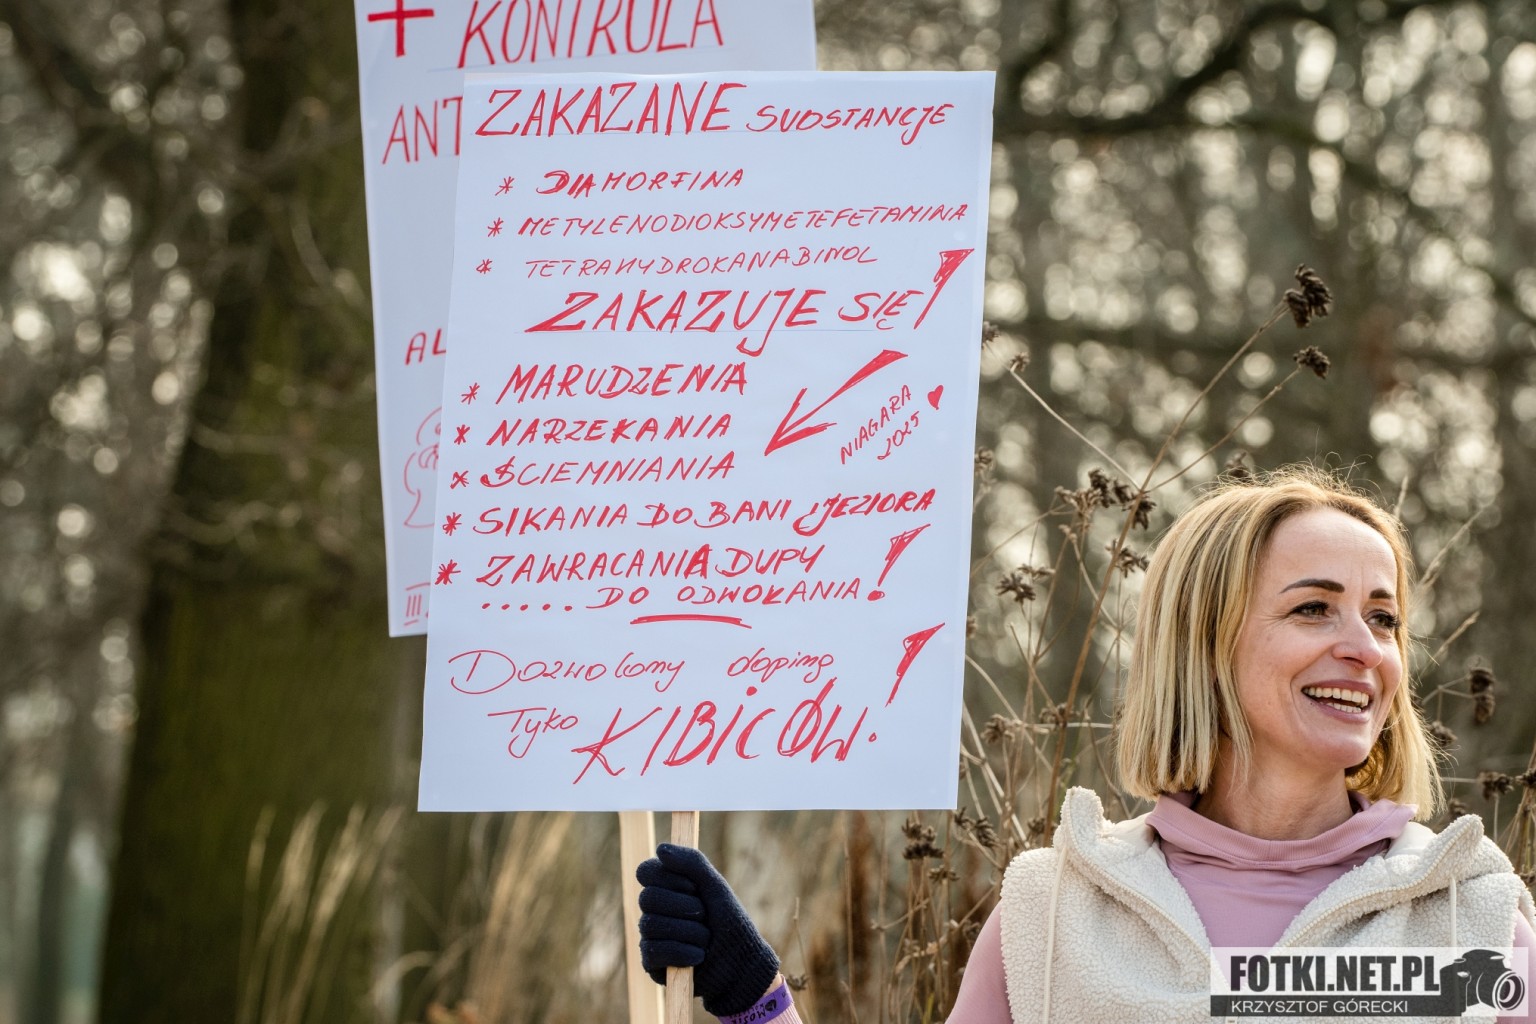 + KONTROLA
ANT
AL
III.
ZAKAZANE SUBSTANCJE
* DIAMORFINA
* METYLENODIOKSYMETEFETAMINA
* TETRAHYDROKANABINOL
ZAKAZUJE SIĘ!
* MARUDZENIA
* NARZEKANIA
* ŚCIEMNIANIA
* SIKANIA DO BANI, JEZIORA
* ZAWRACANIA DUPY
..... DO ODWOŁANIA!
NIAGARA ♥
2025
Dozwolony doping !
Tylko KIBICÓW.
FOTKI.NET.PL
KRZYSZTOF GÓRECKI